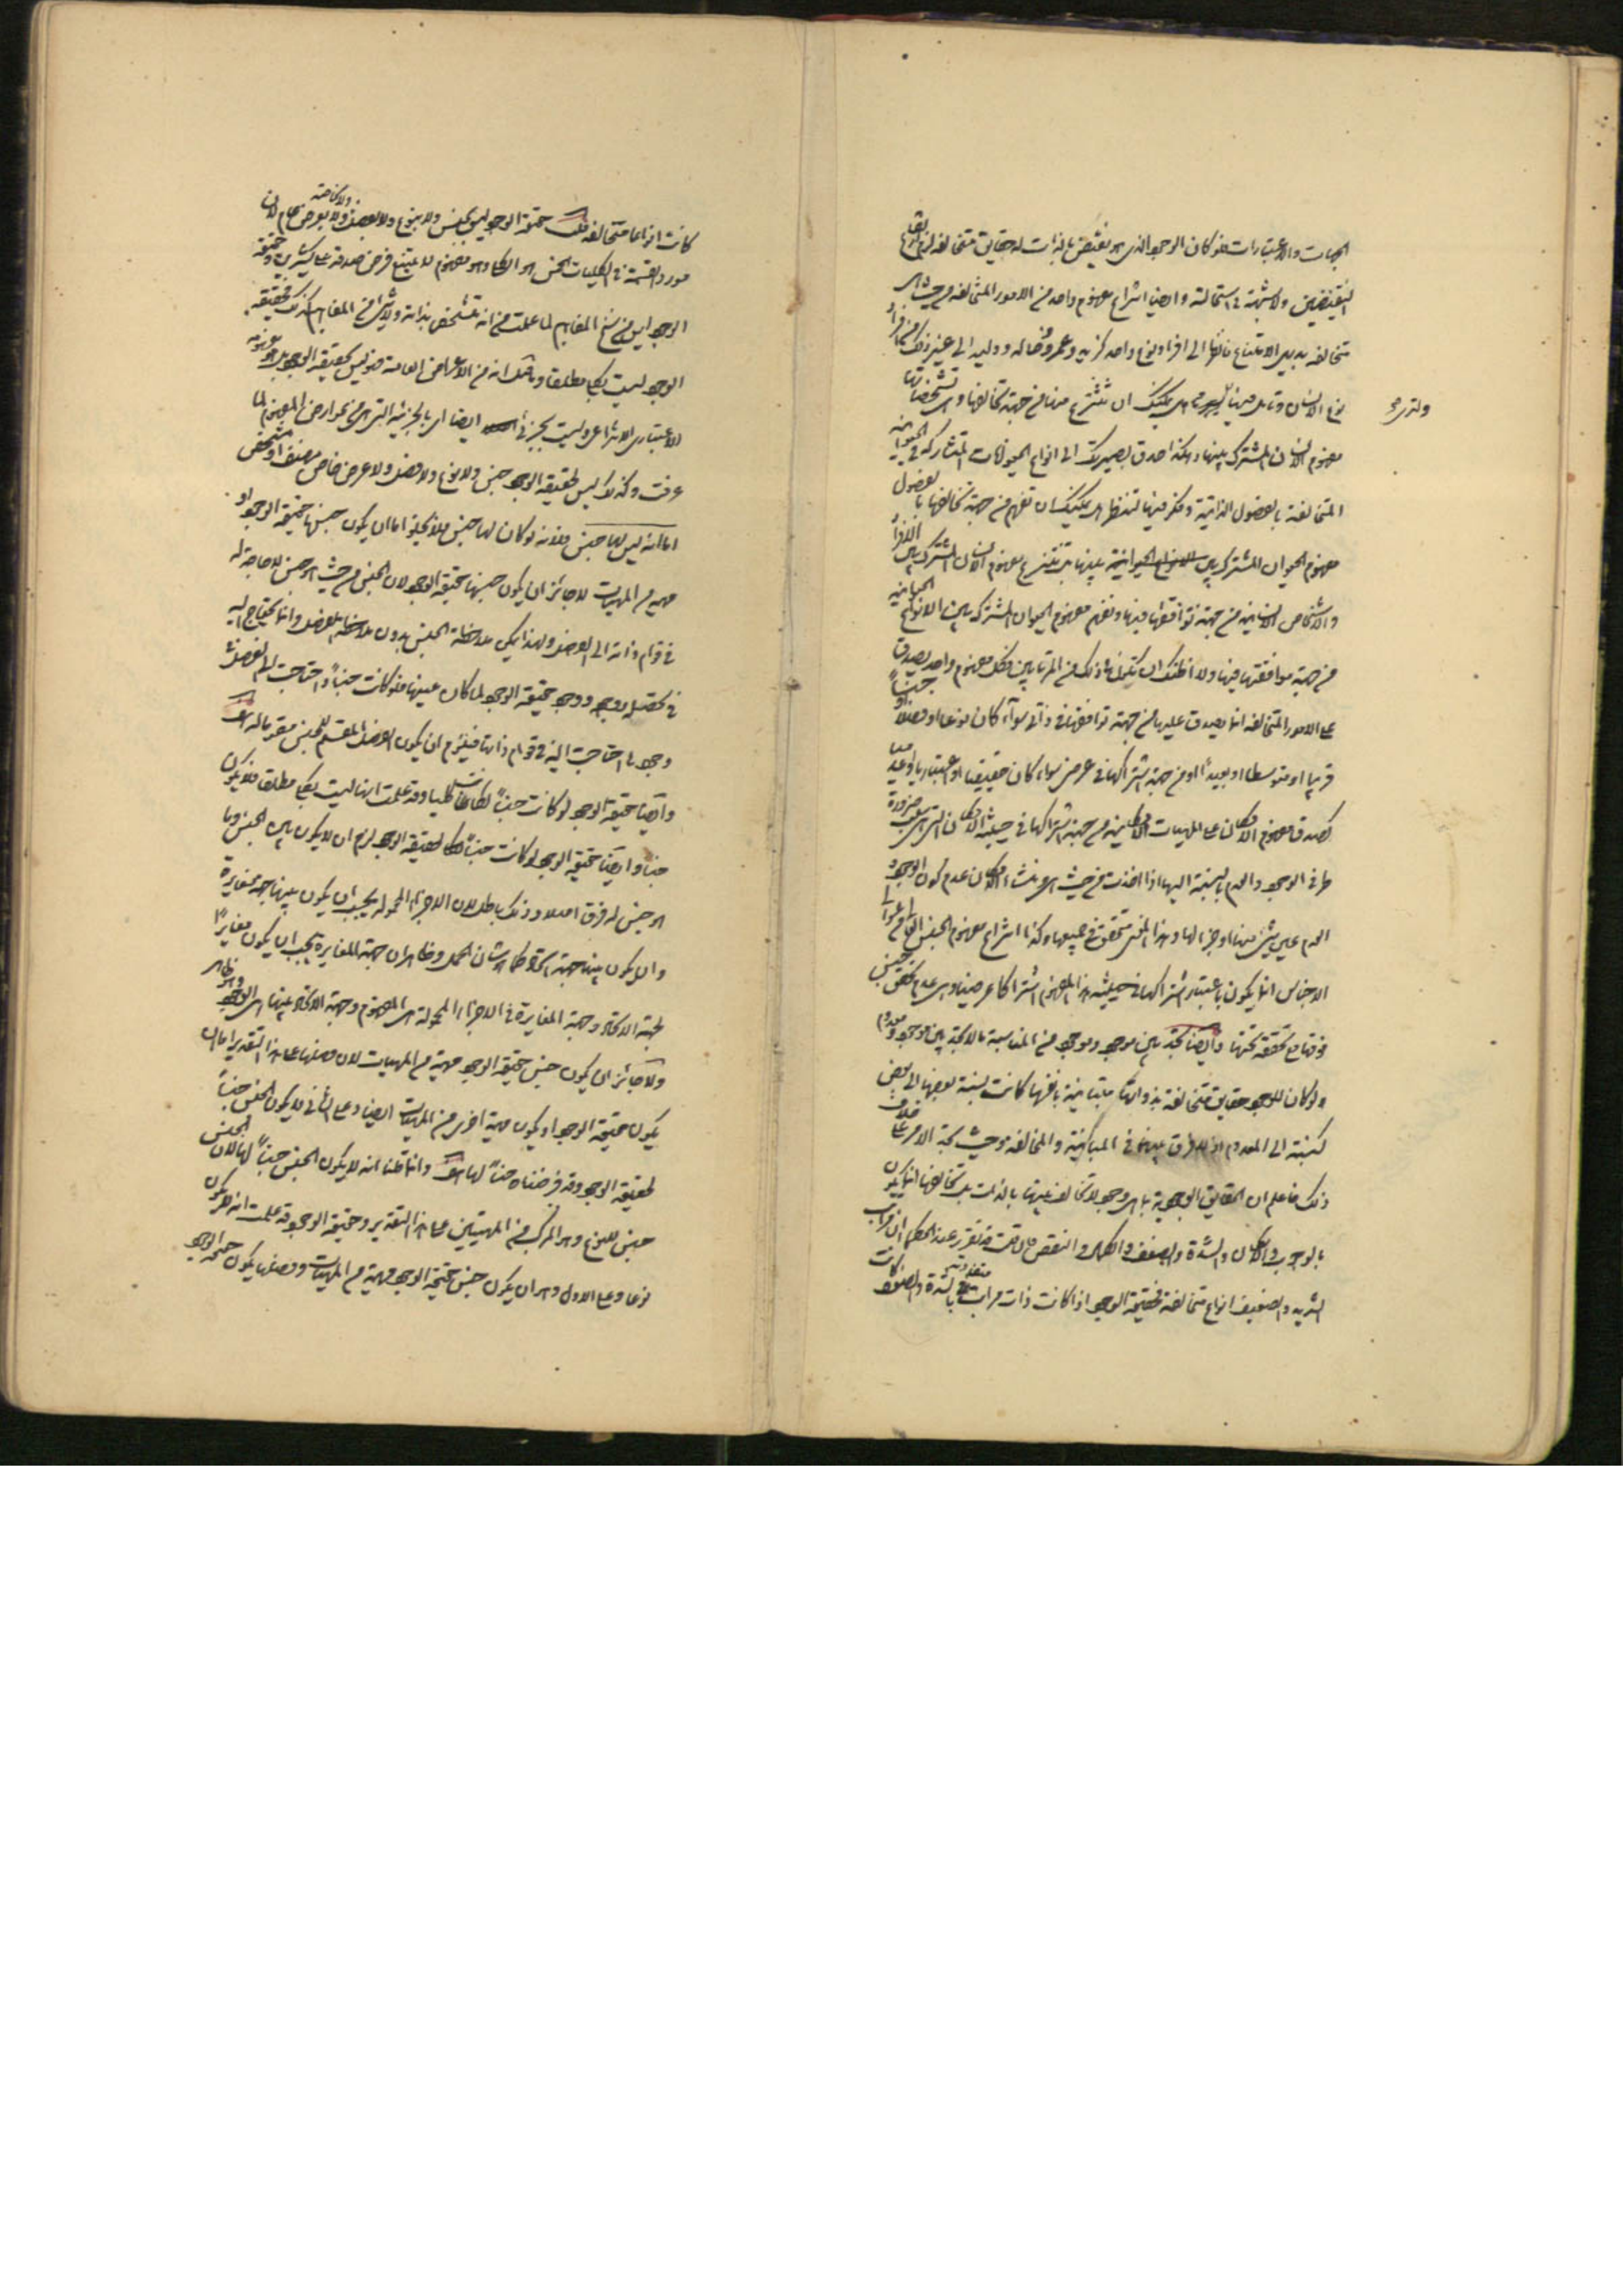 الجهات والاعتبارات فلو كان الوجود الذى هو نقيض بالذات له حقايق متخالفه لزم ارتفاع
النقيضين ولا شبهة فى استحالته وايضا انتزاع مفهوم واحد من الامور المتخالفه من حيث هى
متخالفه بديهى الامتناع فانظر الى افراد نوع واحد كزيد وعمرو وخالد ووليد الى غير ذلك من افراد
نوع الانسان وتامل فيها هل يمكنك ان تنتزع منها من جهة تخالفها وهى تشخصاتها
مفهوم الانسان المشترك بينها وهكذا حدق بصيرتك الى انواع الحيوانات المتشاركه فى الحيوانيه
المتخالفة بالفصول الذاتية وفكر فيها لتنظر هل يمكنك ان تفهم من جهة تخالفها بالفصول
مفهوم الحيوان المشترك بينها بل تنتزع مفهوم الانسان المشترك بين الافراد
والاشخاص الانسانيه من جهة توافقها فيها وتفهم مفهوم الحيوان المشترك بين الانواع الحيوانيه
من جهة موافقتها فيها ولا اظنك ان تكون فى ذلك من المرتابين فكل مفهوم واحد يصدق
على الامور المتخالفه انما يصدق عليها من جهة توافقها فى ذاتى سواء كان نوعا او فصلا او جنسا
قريبا او متوسطا او بعيدا او من جهة اشتراكها فى عرض سواء كان حقيقيا او اعتباريا وعدميا
كصدق مفهوم الامكان على المهيات الامكانيه من جهة اشتراكها فى حيثية الامكان التى هى سلب ضرورة
طرفى الوجود والعدم بالنسبة اليها اذا اخذت من حيث هى ومنشاء الامكان عدم كون الوجود
العدم عين شىء منها او جزء لها وهذا المعنى متحقق فى جميعها وكذا انتزاع مفهوم الجنس العالى من اعالى
الاجناس انما يكون باعتبار اشتراكها فى حيثية هذا المفهوم اشتراكا عرضيا وهى عدم تحقق جنس
فوقها مع تحققه تحتها وايضا نجد بين موجود وموجود من المناسبة ما لا نجد بين موجود ومعدوم
ولو كان للوجود حقايق متخالفة بذواتها متباينة بانفسها كانت نسبة بعضها الى بعض
كنسبته الى المعدوم اذ لا فرق بينهما فى المباينية والمخالفه وحيث نجد الامر على خلاف
ذلك فاعلم ان الحقايق الوجودية بما هى وجود لا تخالف بينها بالذات بل تخالفها انما يكون
بالوجوب والامكان والشدة والضعف والكمال والنقص فان قلت قد تقرر عند الحكماء ان مراتب
الشديد والضعيف انواع متخالفة فحقيقة الوجود اذا كانت ذات مراتب متفاوتة بالشدة والضعف كانت
كانت انواعا متخالفه قلت حقيقة الوجود ليس بجنس ولا بنوع ولا بفصل ولا بخاصة ولا بعرض عام لان
مورد القسمة فى الكليات الخمس هو الكلى وهو مفهوم لا يمتنع فرض صدقه على كثيرين وحقيقة
الوجود ليس من سنخ المفاهيم لما علمت من انه متشخص بذاته ولا شىء من المفاهيم كذلك فحقيقة
الوجود ليست بكلى مطلقا وما قيل انه من الاعراض العامة فهو ليس بحقيقة الوجود بل هو مفهومه
الاعتبارى الانتزاعى وليست بجزئى ايضا اى بالجزئية التى هى من عوارض المفهوم لما
عرفت وكذلك ليس لحقيقة الوجود جنس ولا نوع ولا فصل ولا عرض خاص مصنف او مشخص
اما انه ليس لها جنس فلانه لو كان لها جنس فلا يخلو اما ان يكون جنسها حقيقة الوجود او
مهية من المهيات لا جائز ان يكون جنسها حقيقة الوجود لان الجنس من حيث هو جنس لا حاجة له
فى قوام ذاته الى الفصل ولهذا يمكن ملاحظة الجنس بدون ملاحظة الفصل وانما يحتاج اليه
فى تحصله ووجوده ووجود حقيقة الوجود لما كان عينها فلو كانت جنسا واحتاجت الى الفصل فى
وجودها احتاجت اليه فى قوام ذاتها فيلزم ان يكون الفصل المقسم للجنس مقوما له هف
وايضا حقيقة الوجود لو كانت جنسا لكانت كليا وقد علمت انها ليست بكلى مطلقا فلا يكون
جنسا وايضا حقيقة الوجود لو كانت جنسا لحقيقة الوجود لزم ان لا يكون بين الجنس وما
هو جنس له فرق اصلا وذلك باطل لان الاجزاء المحمولة يجب ان يكون بينها جهة مغايرة
وان يكون بينها جهة اتحاد كما هو شان الحمل وظاهر ان جهة المغايرة يجب ان يكون مغايرا
لجهة الاتحاد وجهة المغايرة فى الاجزاء المحمولة هى المفهوم وجهة الاتحاد بينها هى الوجود وهو ظاهر
ولا جائز ان يكون جنس حقيقة الوجود مهية من المهيات لان فصلها على هذا التقدير اما ان
يكون حقيقة الوجود او يكون مهية اخرى من المهيات ايضا وعلى الثانى لا يكون الجنس جنسا
لحقيقة الوجود وقد فرضناه جنسا لها هف وانما قلنا انه لا يكون الجنس جنسا لها لان الجنس
جنس للنوع وهو المركب من المهيتين على هذا التقدير وحقيقة الوجود قد علمت انه لا يكون
نوعا وعلى الاول وهو ان يكون جنس حقيقة الوجود مهية من المهيات وفصلها يكون حقيقة الوجود